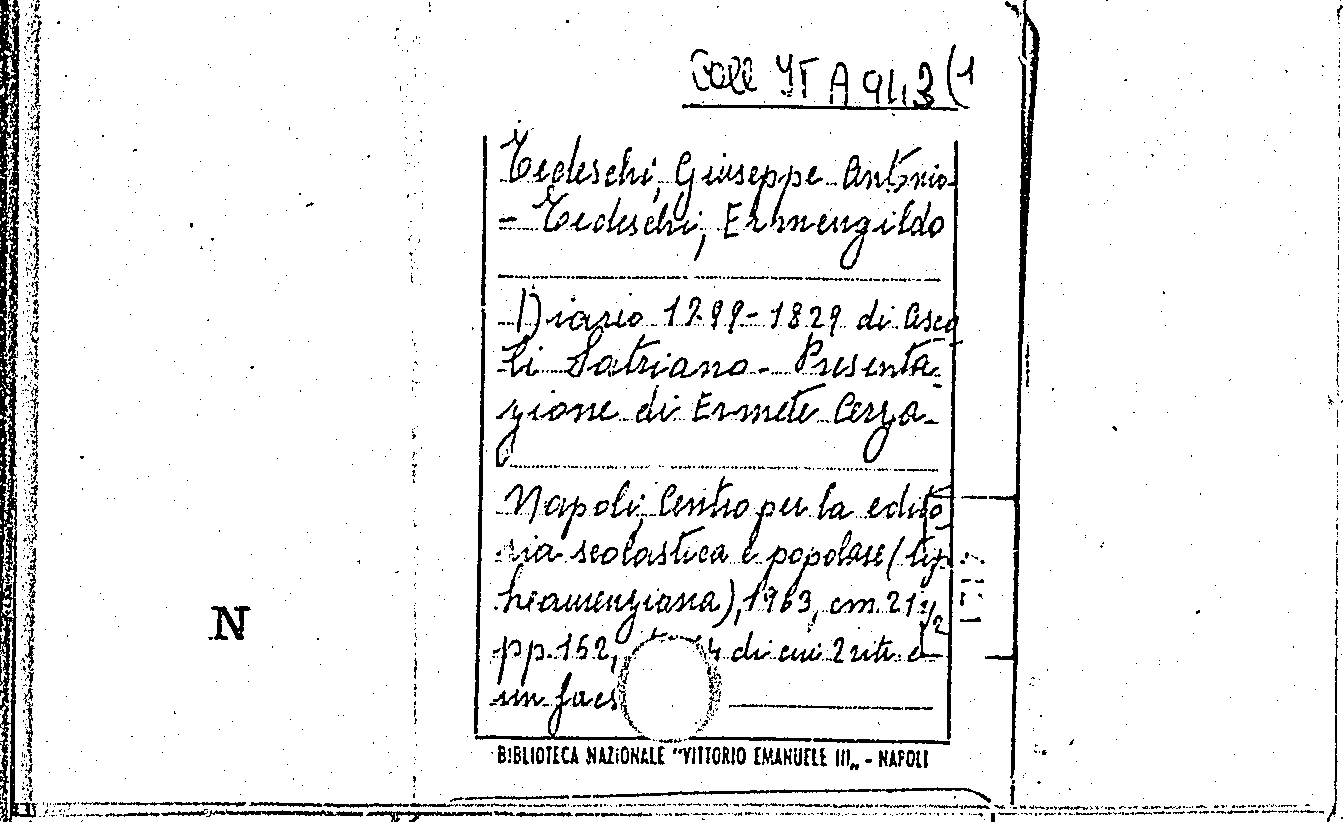 Coll IT A 943 (1
Tedeschi, Giuseppe Antonio
- Tedeschi, Ermengildo
Diario 1799-1829 di Asco
li Satriano - Presenta-
zione di Ermete Cerza -
Napoli, Centro per la edito
ria scolastica e popolare (tip.
heamenziana), 1963, cm. 21 1/2
pp. 152, 4 di cui 2 rit. e
un facs
N
BIBLIOTECA NAZIONALE "VITTORIO EMANUELE III„ - NAPOLI